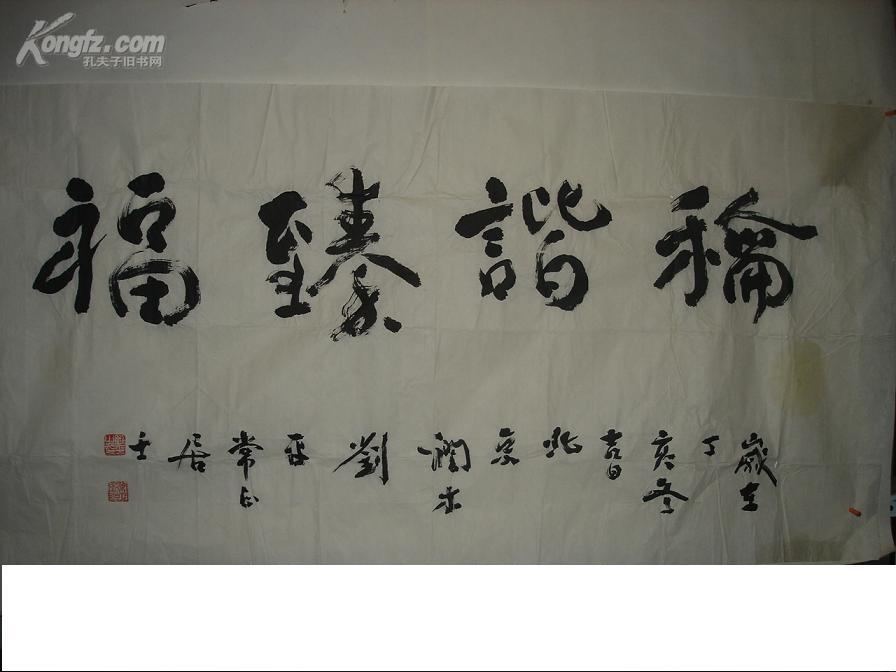 Kongfz.com
孔夫子旧书网
龢諧臻福
歲在丁亥冬吉日北京潤木劉常正居士